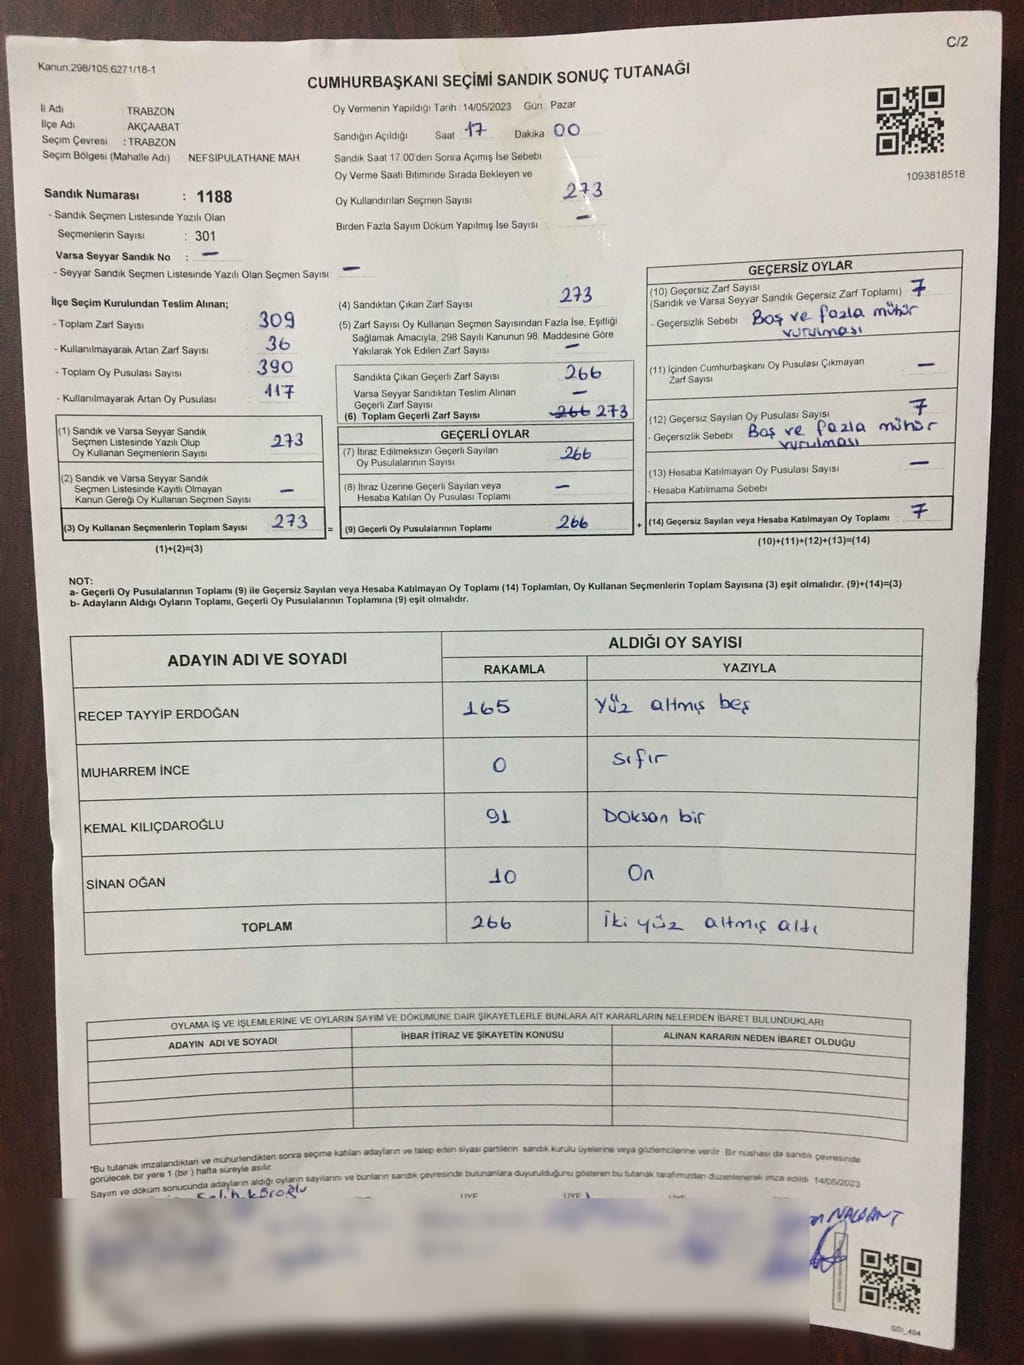 C/2
Kanun:298/105;6271/18-1
CUMHURBAŞKANI SEÇİMİ SANDIK SONUÇ TUTANAĞI
İl Adı : TRABZON
İlçe Adı : AKÇAABAT
Seçim Çevresi : TRABZON
Seçim Bölgesi (Mahalle Adı) NEFSİPULATHANE MAH.
Oy Vermenin Yapıldığı Tarih :14/05/2023 Gün : Pazar
Sandığın Açıldığı Saat : 17 Dakika : 00
Sandık Saat 17.00'den Sonra Açımış İse Sebebi :
Oy Verme Saati Bitiminde Sırada Bekleyen ve
Oy Kullandırılan Seçmen Sayısı : 273
Birden Fazla Sayım Döküm Yapılmış İse Sayısı : —
1093818518
Sandık Numarası : 1188
- Sandık Seçmen Listesinde Yazılı Olan
Seçmenlerin Sayısı : 301
Varsa Seyyar Sandık No : —
- Seyyar Sandık Seçmen Listesinde Yazılı Olan Seçmen Sayısı: —
İlçe Seçim Kurulundan Teslim Alınan;
- Toplam Zarf Sayısı : 309
- Kullanılmayarak Artan Zarf Sayısı : 36
- Toplam Oy Pusulası Sayısı : 390
- Kullanılmayarak Artan Oy Pusulası : 117
(1) Sandık ve Varsa Seyyar Sandık
Seçmen Listesinde Yazılı Olup
Oy Kullanan Seçmenlerin Sayısı : 273
(2) Sandık ve Varsa Seyyar Sandık
Seçmen Listesinde Kayıtlı Olmayan
Kanun Gereği Oy Kullanan Seçmen Sayısı : —
(3) Oy Kullanan Seçmenlerin Toplam Sayısı : 273
(1)+(2)=(3)
(4) Sandıktan Çıkan Zarf Sayısı : 273
(5) Zarf Sayısı Oy Kullanan Seçmen Sayısından Fazla İse, Eşitliği
Sağlamak Amacıyla, 298 Sayılı Kanunun 98. Maddesine Göre
Yakılarak Yok Edilen Zarf Sayısı : —
Sandıkta Çıkan Geçerli Zarf Sayısı : 266
Varsa Seyyar Sandıktan Teslim Alınan
Geçerli Zarf Sayısı : —
(6) Toplam Geçerli Zarf Sayısı : 266 273
=
GEÇERLİ OYLAR
(7) İtiraz Edilmeksizin Geçerli Sayılan
Oy Pusulalarının Sayısı : 266
(8) İtiraz Üzerine Geçerli Sayılan veya
Hesaba Katılan Oy Pusulası Toplamı : —
(9) Geçerli Oy Pusulalarının Toplamı : 266
+
GEÇERSİZ OYLAR
(10) Geçersiz Zarf Sayısı
(Sandık ve Varsa Seyyar Sandık Geçersiz Zarf Toplamı) : 7
- Geçersizlik Sebebi : Boş ve fazla mühür
vurulması
(11) İçinden Cumhurbaşkanı Oy Pusulası Çıkmayan
Zarf Sayısı : —
(12) Geçersiz Sayılan Oy Pusulası Sayısı : 7
- Geçersizlik Sebebi : Boş ve fazla mühür
vurulması
(13) Hesaba Katılmayan Oy Pusulası Sayısı : —
- Hesaba Katılmama Sebebi :
(14) Geçersiz Sayılan veya Hesaba Katılmayan Oy Toplamı : 7
(10)+(11)+(12)+(13)=(14)
NOT:
a- Geçerli Oy Pusulalarının Toplamı (9) ile Geçersiz Sayılan veya Hesaba Katılmayan Oy Toplamı (14) Toplamları, Oy Kullanan Seçmenlerin Toplam Sayısına (3) eşit olmalıdır. (9)+(14)=(3)
b- Adayların Aldığı Oyların Toplamı, Geçerli Oy Pusulalarının Toplamına (9) eşit olmalıdır.
ADAYIN ADI VE SOYADI ALDIĞI OY SAYISI
RAKAMLA YAZIYLA
RECEP TAYYİP ERDOĞAN 165 Yüz altmış beş
MUHARREM İNCE 0 Sıfır
KEMAL KILIÇDAROĞLU 91 Doksan bir
SİNAN OĞAN 10 On
TOPLAM 266 İki yüz altmış altı
OYLAMA İŞ VE İŞLEMLERİNE VE OYLARIN SAYIM VE DÖKÜMÜNE DAİR ŞİKAYETLERLE BUNLARA AİT KARARLARIN NELERDEN İBARET BULUNDUKLARI
ADAYIN ADI VE SOYADI İHBAR İTİRAZ VE ŞİKAYETİN KONUSU ALINAN KARARIN NEDEN İBARET OLDUĞU
*Bu tutanak imzalandıktan ve mühürlendikten sonra seçime katılan adayların ve talep eden siyasi partilerin sandık kurulu üyelerine veya gözlemcilerine verilir. Bir nüshası da sandık çevresinde
görülecek bir yere 1 (bir) hafta süreyle asılır.
Sayım ve döküm sonucunda adayların aldığı oyların sayılarını ve bunların sandık çevresinde bulunanlara duyurulduğunu gösteren bu tutanak tarafımızdan düzenlenerek imza edildi. 14/05/2023
Salih Köroğlu
NALBANT
SSI_404